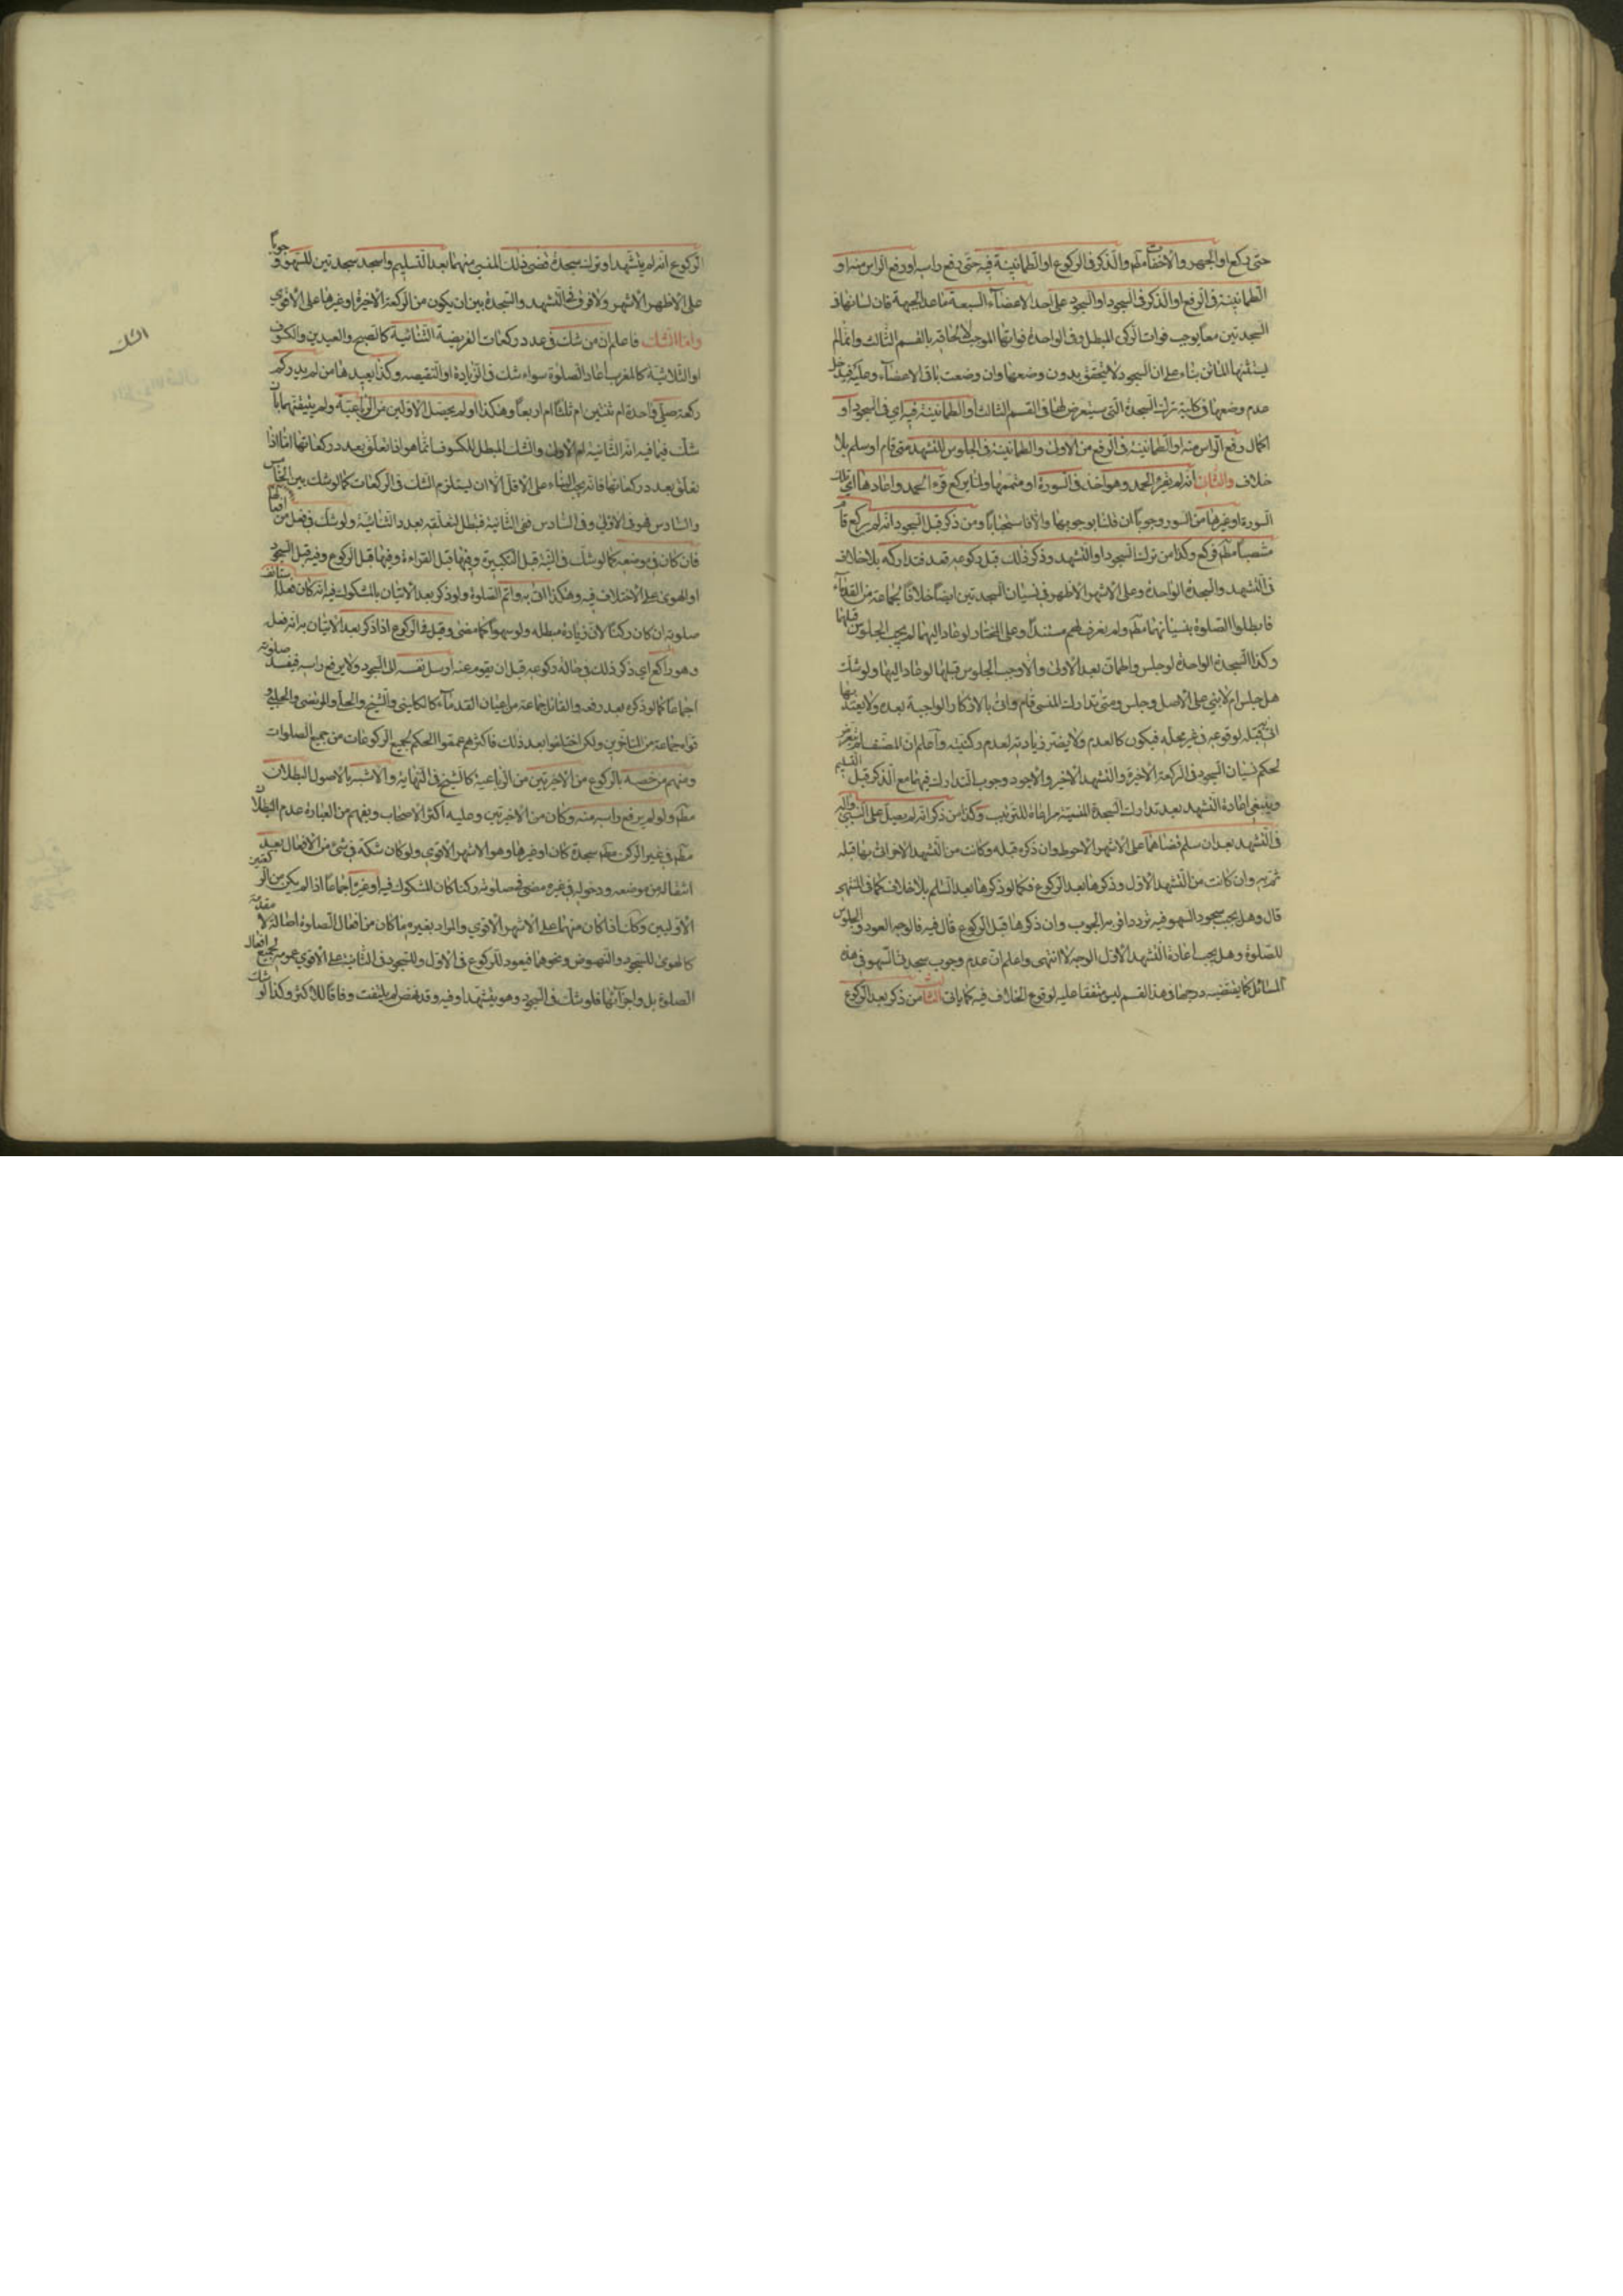 حتى يركع او الجهر والاخفات مطم والذكر فى الركوع او الطمانينة فيه حتى رفع راسه او رفع الراس منه او
الطمانينة فى الرفع او الذكر فى السجود او السجود على احد الاعضاء السبعة ما عدا الجبهة فان نسيانها فى
السجدتين معا يوجب فوات الركن المبطل وفى الواحدة فواتها الموجب لالحاقه بالقسم الثالث وانما لم
يستثنها الماتن بناء على ان السجود لا يتحقق بدون وضعها وان وضعت باقى الاعضاء وعليه فيدخل
عدم وضعها فى كلية ترك السجدة التى سيتعرض لها فى القسم الثالث او الطمانينة فيه اى فى السجود او
اكمال رفع الراس منه او الطمانينة فى الرفع من الاولى والطمانينة فى الجلوس للتشهد متى قام او سلم بلا
خلاف والثانى انه لم يقرء الحمد وهو اخذ فى السورة او متممها ولما يركع قرء الحمد واعادها اى تلك
السورة او غيرها من السور وجوبا ان قلنا بوجوبها والا فاستحبابا ومن ذكر قبل السجود انه لم يركع قام
منتصبا مطم فركع وكذا من ترك السجود او التشهد وذكر ذلك قبل ركوعه قعد فتداركه بلا خلاف
فى التشهد والسجدة الواحدة وعلى الاشهر الاظهر فى نسيان السجدتين ايضا خلافا لجماعة من القدماء
فابطلوا الصلوة بنسيانهما مطم ولم نعرف لهم مستندا وعلى المختار لو عاد اليهما لم يجب الجلوس قبلها
وكذا السجدة الواحدة لو جلس واطمان بعد الاولى والا وجب الجلوس قبلها لو عاد اليها ولو شك
هل جلس ام لا بنى على الاصل وجلس ومتى تدارك المنسى قام واتى بالاذكار الواجبة بعده ولا يعتد بما
اتى به قبله لوقوعه فى غير محله فيكون كالعدم ولا يضر زيادته لعدم ركنيته واعلم ان المصنف لم يتعرض
لحكم نسيان السجود فى الركعة الاخيرة والتشهد الاخير والاجود وجوب التدارك فيهما مع الذكر قبل التسليم
وينبغى اعادة التشهد بعد تدارك السجدة المنسية مراعاة للترتيب وكذا من ذكر انه لم يصل على النبى واله
فى التشهد بعد ان سلم قضاهما على الاشهر الاحوط وان ذكره قبله وكانت من التشهد الاخر اتى بها قبله
ثم يتم وان كانت من التشهد الاول وذكرها بعد الركوع فكما لو ذكرها بعد التسليم بلا خلاف كما فى
قال وهل يجب سجود السهو فيه تردد اقربه الوجوب وان ذكرها قبل الركوع قال فيه فالوجه العود والجلوس
للصلوة وهل يجب اعادة التشهد الاول الوجه لا انتهى واعلم ان عدم وجوب سجدتى السهو فى هذه
المسائل كما يقتضيه درجها فى هذا القسم ليس متفقا عليه لوقوع الخلاف فيه كما ياتى الثالث من ذكر بعد الركوع
الركوع انه لم يتشهد او ترك سجدة قضى ذلك المنسى منهما بعد التسليم واسجد سجدتين للسهو وجوبا
على الاظهر الاشهر ولا فرق فى التشهد والسجدة بين ان يكون من الركعة الاخيرة او غيرها على الاقوى
واما الشك فاعلم ان من شك فى عدد ركعات الفريضة الثنائية كالصبح والعيدين والكسوف
او الثلاثية كالمغرب اعاد الصلوة سواء شك فى الزيادة او النقيصة وكذا يعيدها من لم يدر كم
ركعة صلى واحدة ام ثنتين ام ثلثا ام اربعا وهكذا او لم يحصل الاوليين من الرباعية ولم يتيقنهما بان
شك فيما فيه انه الثانية ام الاولى والشك المبطل للكسوف انما هو اذا تعلق بعدد ركعاتها اما اذا
تعلق بعدد ركعاتها فانه يجب البناء على الاقل الا ان يستلزم الشك فى الركعات كما لو شك بين الخامس
والسادس هو فى الاولى وفى السادس فى الثانية فتبطل لتعلقه بعدد الثنائية ولو شك فى فعل من افعالها
فان كان فى موضعه كما لو شك فى النية قبل التكبيرة وفيها قبل القراءة وفيها قبل الركوع وفيه قبل السجود
او الهوى على الاختلاف فيه وهكذا اتى به واتم الصلوة ولو ذكر بعد الاتيان بالمشكوك فيه انه كان فعله استانف
صلوته ان كان ركنا لان زيادة مبطلة ولو سهوا كما مضى وقيل فى الركوع اذا ذكر بعد الاتيان به انه فعل
وهو راكع اى ذكر ذلك فى حالة ركوعه قبل ان يقوم عنه ارسل نفسه الى السجود ولا يرفع راسه فيفسد صلوته
اجماعا كما لو ذكره بعد رفعه والقائل جماعة من اعيان القدماء كالكلينى والشيخ والحلى والمرتضى والحلبى و
قواه جماعة من المتاخرين ولكن اختلفوا بعد ذلك فاكثرهم عمموا الحكم لجميع الركوعات من جميع الصلوات
ومنهم من خصه بالركوع من الاخيرتين من الرباعية كالشيخ فى النهاية والاشبه بالاصول البطلان
مطم ولو لم يرفع راسه منه وكان من الاخيرتين وعليه اكثر الاصحاب ويفهم من العبارة عدم البطلان
مطم فى غير الركن مطم سجدة كان او غيرها وهو الاشهر الاقوى ولو كان شكه فى شئ من الافعال بعد
انتقاله من موضعه ودخوله فى غيره مضى فى صلوته ركنا كان المشكوك فيه او غيره اجماعا اذا لم يكن من الركعتين
الاوليين وكك اذا كان منهما على الاشهر الاقوى والمراد بغيره ما كان من افعال الصلوة اصالة لا مقدمة
كالهوى للسجود والنهوض ونحوهما فيعود للركوع فى الاول وللسجود فى الثانية على الاقوى عموما لجميع افعال
الصلوة بل واجزائها فلو شك فى السجود وهو يتشهد او فيه وقد نهض لم يلتفت وفاقا للاكثر وكذا لو شك
الشك